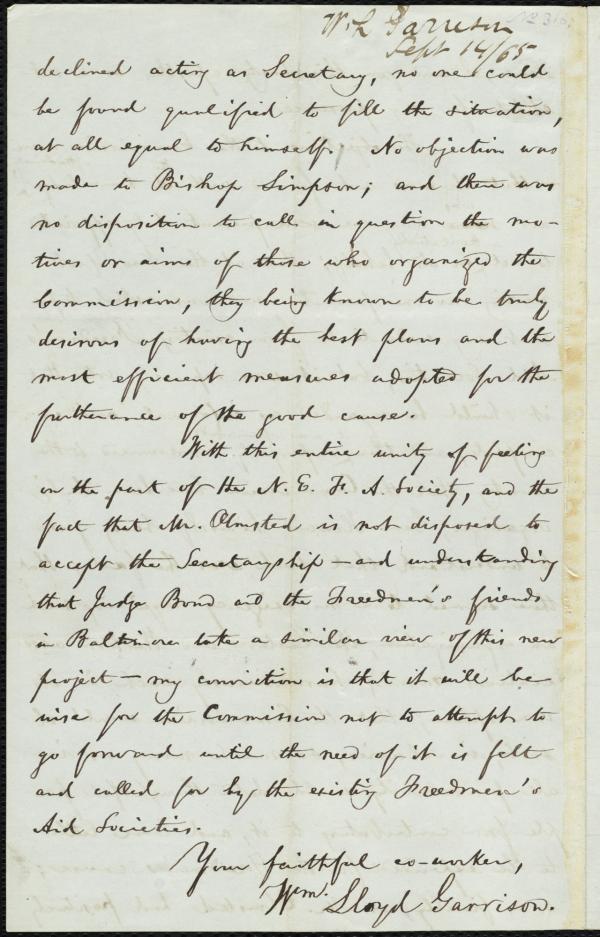 W. L. Garrison
Sept 14/65
declined acting as Secretary, no one could
be found qualified to fill the situation,
at all equal to himself. No objection was
made to Bishop Simpson; and there was
no disposition to call in question the mo-
tives or aims of those who organized the
Commission, they being known to be truly
desirous of having the best plans and the
most efficient measures adopted for the
furtherance of the good cause.
With this entire unity of feeling
on the part of the N. E. F. A. Society, and the
fact that Mr. Olmsted is not disposed to
accept the Secretaryship — and understanding
that Judge Bond and the Freedmen's friends
in Baltimore take a similar view of this new
project — my conviction is that it will be
wise for the Commission not to attempt to
go forward until the need of it is felt
and called for by the existing Freedmen's
Aid Societies.
Your faithful co-worker,
Wm. Lloyd Garrison.